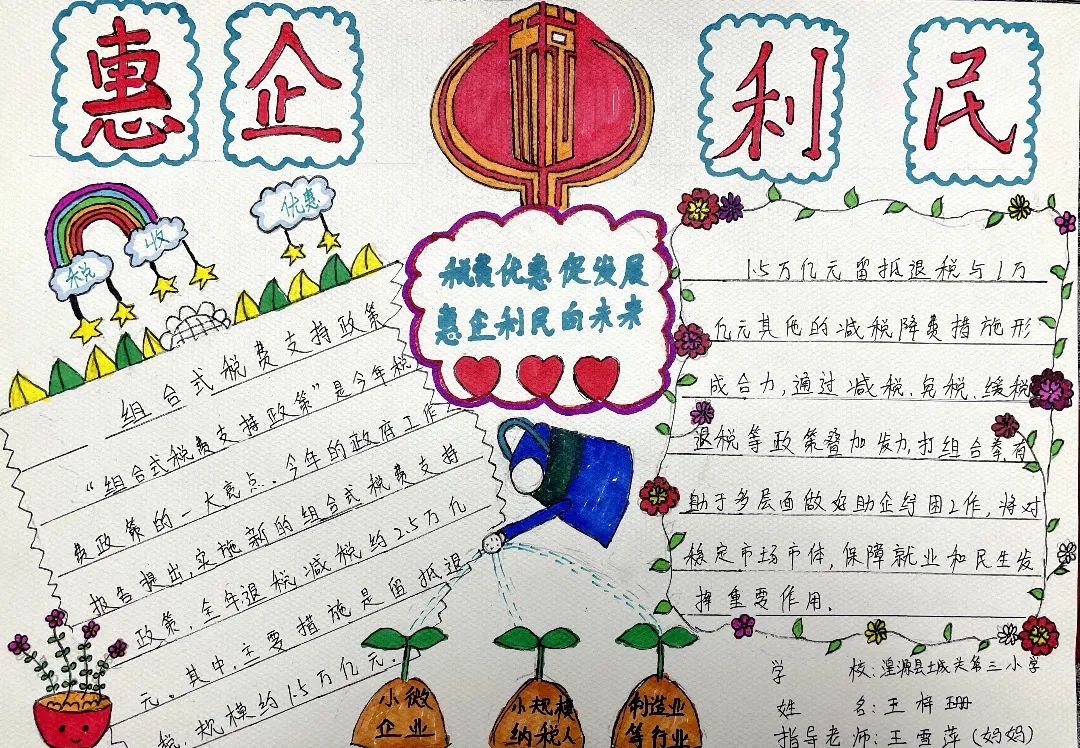 惠企利民
税
税收优惠
税费优惠促发展
惠企利民向未来
组合式税费支持政策
“组合式税费支持政策”是今年税
费政策的一大亮点。今年的政府工作
报告提出,实施新的组合式税费支持
政策,全年退税减税约2.5万亿
元。其中,主要措施是留抵退
税,规模约1.5万亿元.
1.5万亿元留抵退税与1万
亿元其他的减税降费措施形
成合力,通过减税.免税.缓税
退税等政策叠加发力,打组合拳,有
助于多层面做好助企纾困工作,将对
稳定市场市体,保障就业和民生发
挥重要作用.
小微
企业
小规模
纳税人
制造业
等行业
学 校:湟源县城关第三小学
姓 名:王梓珊
指导老师:王雪萍(妈妈)